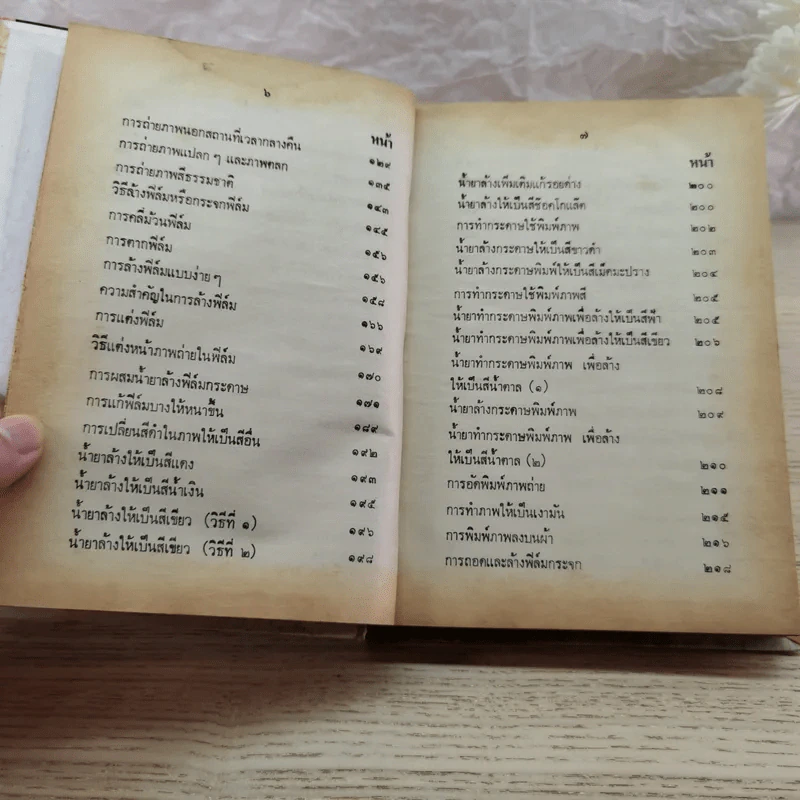 ๖
หน้า
การถ่ายภาพนอกสถานที่เวลากลางคืน ๑๒๙
การถ่ายภาพแปลก ๆ และภาพตลก ๑๓๕
การถ่ายภาพสีธรรมชาติ ๑๔๓
วิธีล้างฟิล์มหรือกระจกฟิล์ม ๑๔๕
การคลี่ม้วนฟิล์ม ๑๕๖
การตากฟิล์ม ๑๕๖
การล้างฟิล์มแบบง่าย ๆ ๑๕๘
ความสำคัญในการล้างฟิล์ม ๑๖๖
การแต่งฟิล์ม ๑๖๙
วิธีแต่งหน้าภาพถ่ายในฟิล์ม ๑๗๐
การผสมน้ำยาล้างฟิล์มกระดาษ ๑๗๑
การแก้ฟิล์มบางให้หนาขึ้น ๑๘๙
การเปลี่ยนสีดำในภาพให้เป็นสีอื่น ๑๙๒
น้ำยาล้างให้เป็นสีแดง ๑๙๓
น้ำยาล้างให้เป็นสีน้ำเงิน ๑๙๕
น้ำยาล้างให้เป็นสีเขียว (วิธีที่ ๑) ๑๙๖
น้ำยาล้างให้เป็นสีเขียว (วิธีที่ ๒) ๑๙๘
๗
หน้า
น้ำยาล้างเพิ่มเติมแก้รอยด่าง ๒๐๐
น้ำยาล้างให้เป็นสีช๊อคโกแล๊ต ๒๐๐
การทำกระดาษใช้พิมพ์ภาพ ๒๐๒
น้ำยาล้างกระดาษให้เป็นสีขาวดำ ๒๐๓
น้ำยาล้างกระดาษพิมพ์ให้เป็นสีเม็ดมะปราง ๒๐๔
การทำกระดาษใช้พิมพ์ภาพสี ๒๐๕
น้ำยาทำกระดาษพิมพ์ภาพเพื่อล้างให้เป็นสีฟ้า ๒๐๕
น้ำยาทำกระดาษพิมพ์ภาพเพื่อล้างให้เป็นสีเขียว ๒๐๖
น้ำยาทำกระดาษพิมพ์ภาพ เพื่อล้าง
ให้เป็นสีน้ำตาล (๑) ๒๐๘
น้ำยาล้างกระดาษพิมพ์ภาพ ๒๐๙
น้ำยาทำกระดาษพิมพ์ภาพ เพื่อล้าง
ให้เป็นสีน้ำตาล (๒) ๒๑๐
การอัดพิมพ์ภาพถ่าย ๒๑๑
การทำภาพให้เป็นเงามัน ๒๑๕
การพิมพ์ภาพลงบนผ้า ๒๑๖
การถอดและล้างฟิล์มกระจก ๒๑๘